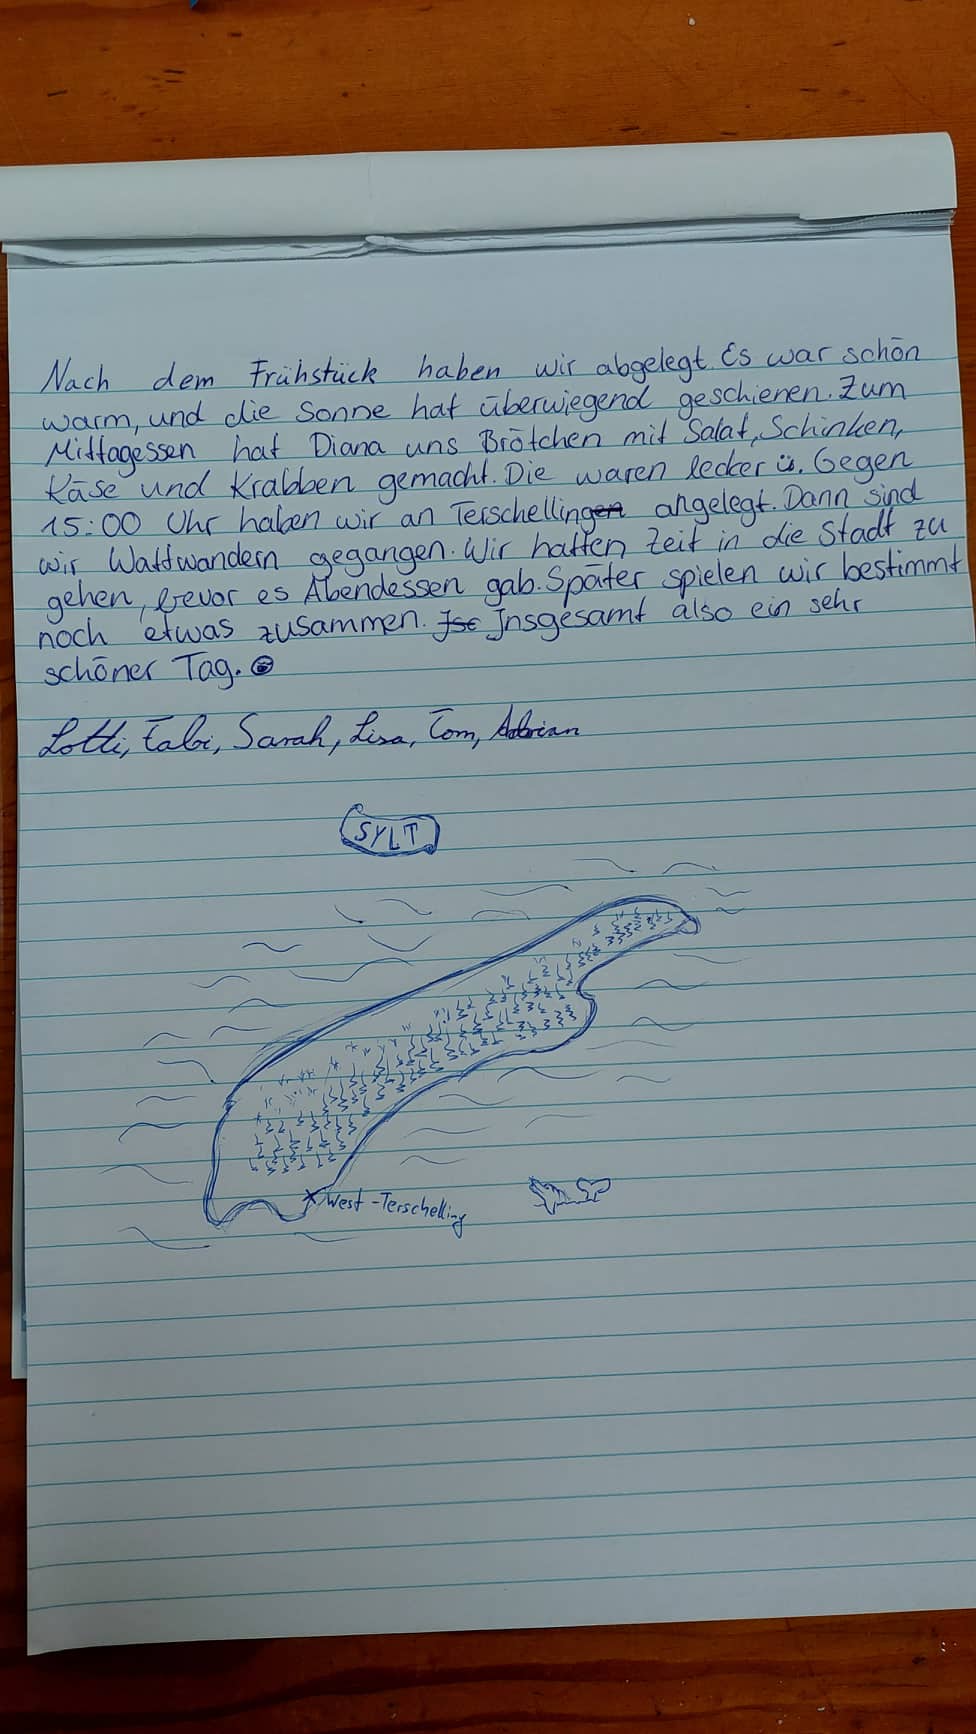 Nach dem Frühstück haben wir abgelegt. Es war schön
warm, und die Sonne hat überwiegend geschienen. Zum
Mittagessen hat Diana uns Brötchen mit Salat, Schinken,
Käse und Krabben gemacht. Die waren lecker ü. Gegen
15:00 Uhr haben wir an Terschellingen angelegt. Dann sind
wir Wattwandern gegangen. Wir hatten Zeit in die Stadt zu
gehen, bevor es Abendessen gab. Später spielen wir bestimmt
noch etwas zusammen. Ise Insgesamt also ein sehr
schöner Tag.
Lotti, Fabi, Sarah, Lisa, Tom, Adrian
SYLT
West-Terschelling